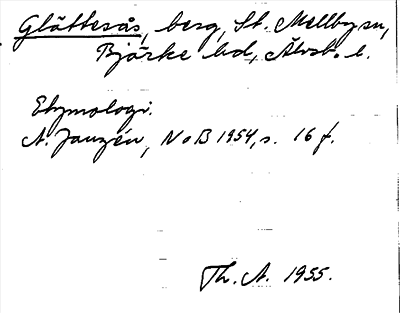 Glätterås, berg, St. Mellby sn,
Bjärke hd, Älvsb. l.
Etymologi.
A. Janzén, NoB 1954, s. 16 f.
Th. A. 1955.